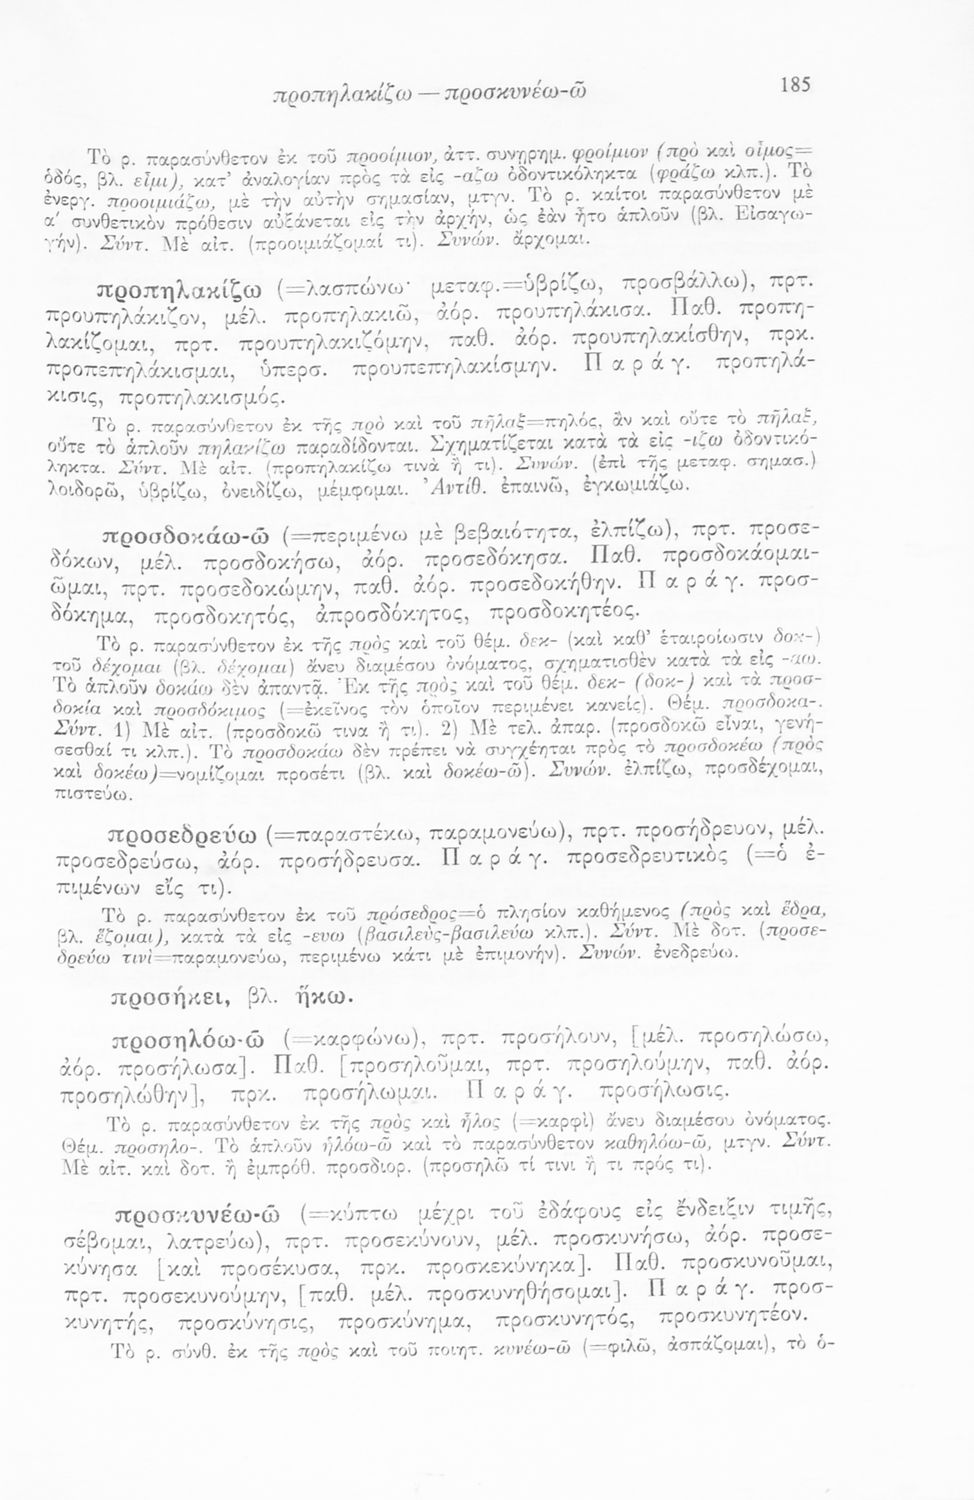 προπηλακίζω — προσκυνέω-ῶ
185
Τὸ ρ. παρασύνθετον ἐκ τοῦ προοίμιον, ἀττ. συνῃρημ. φροίμιον (πρὸ καὶ οἶμος=
ὁδός, βλ. εἶμι), κατ’ ἀναλογίαν πρὸς τὰ εἰς -αζω ὀδοντικόληκτα (φράζω κλπ.). Τὸ
ἐνεργ. προοιμιάζω, μὲ τὴν αὐτὴν σημασίαν, μτγν. Τὸ ρ. καίτοι παρασύνθετον μὲ
α΄ συνθετικὸν πρόθεσιν αὐξάνεται εἰς τὴν ἀρχήν, ὡς ἐὰν ἦτο ἁπλοῦν (βλ. Εἰσαγω-
γήν). Σύντ. Μὲ αἰτ. (προοιμιάζομαί τι). Συνών. ἄρχομαι.
προπηλακίζω (=λασπώνω· μεταφ.=ὑβρίζω, προσβάλλω), πρτ.
προυπηλάκιζον, μέλ. προπηλακιῶ, ἀόρ. προυπηλάκισα. Παθ. προπη-
λακίζομαι, πρτ. προυπηλακιζόμην, παθ. ἀόρ. προυπηλακίσθην, πρκ.
προπεπηλάκισμαι, ὑπερσ. προυπεπηλακίσμην. Παράγ. προπηλά-
κισις, προπηλακισμός.
Τὸ ρ. παρασύνθετον ἐκ τῆς πρὸ καὶ τοῦ πῆλαξ=πηλός, ἂν καὶ οὔτε τὸ πῆλαξ,
οὔτε τὸ ἁπλοῦν πηλακίζω παραδίδονται. Σχηματίζεται κατὰ τὰ εἰς -ιζω ὀδοντικό-
ληκτα. Σύντ. Μὲ αἰτ. (προπηλακίζω τινὰ ἤ τι). Συνών. (ἐπὶ τῆς μεταφ. σημασ.)
λοιδορῶ, ὑβρίζω, ὀνειδίζω, μέμφομαι. Ἀντίθ. ἐπαινῶ, ἐγκωμιάζω.
προσδοκάω-ῶ (=περιμένω μὲ βεβαιότητα, ἐλπίζω), πρτ. προσε-
δόκων, μέλ. προσδοκήσω, ἀόρ. προσεδόκησα. Παθ. προσδοκάομαι-
ῶμαι, πρτ. προσεδοκώμην, παθ. ἀόρ. προσεδοκήθην. Παράγ. προσ-
δόκημα, προσδοκητός, ἀπροσδόκητος, προσδοκητέος.
Τὸ ρ. παρασύνθετον ἐκ τῆς πρὸς καὶ τοῦ θέμ. δεκ- (καὶ καθ’ ἑταιροίωσιν δοκ-)
τοῦ δέχομαι (βλ. δέχομαι) ἄνευ διαμέσου ὀνόματος, σχηματισθὲν κατὰ τὰ εἰς -αω.
Τὸ ἁπλοῦν δοκάω δὲν ἀπαντᾷ. Ἐκ τῆς πρὸς καὶ τοῦ θέμ. δεκ- (δοκ-) καὶ τὰ προσ-
δοκία καὶ προσδόκιμος (=ἐκεῖνος τὸν ὁποῖον περιμένει κανείς). Θέμ. προσδοκα-.
Σύντ. 1) Μὲ αἰτ. (προσδοκῶ τινα ἤ τι). 2) Μὲ τελ. ἀπαρ. (προσδοκῶ εἶναι, γενή-
σεσθαί τι κλπ.). Τὸ προσδοκάω δὲν πρέπει νὰ συγχέηται πρὸς τὸ προσδοκέω (πρὸς
καὶ δοκέω)=νομίζομαι προσέτι (βλ. καὶ δοκέω-ῶ). Συνών. ἐλπίζω, προσδέχομαι,
πιστεύω.
προσεδρεύω (=παραστέκω, παραμονεύω), πρτ. προσήδρευον, μέλ.
προσεδρεύσω, ἀόρ. προσήδρευσα. Παράγ. προσεδρευτικὸς (=ὁ ἐ-
πιμένων εἴς τι).
Τὸ ρ. παρασύνθετον ἐκ τοῦ πρόσεδρος=ὁ πλησίον καθήμενος (πρὸς καὶ ἕδρα,
βλ. ἕζομαι), κατὰ τὰ εἰς -ευω (βασιλεὺς-βασιλεύω κλπ.). Σύντ. Μὲ δοτ. (προσε-
δρεύω τινὶ=παραμονεύω, περιμένω κάτι μὲ ἐπιμονήν). Συνών. ἐνεδρεύω.
προσήκει, βλ. ἥκω.
προσηλόω-ῶ (=καρφώνω), πρτ. προσήλουν, [μέλ. προσηλώσω,
ἀόρ. προσήλωσα]. Παθ. [προσηλοῦμαι, πρτ. προσηλούμην, παθ. ἀόρ.
προσηλώθην], πρκ. προσήλωμαι. Παράγ. προσήλωσις.
Τὸ ρ. παρασύνθετον ἐκ τῆς πρὸς καὶ ἧλος (=καρφὶ) ἄνευ διαμέσου ὀνόματος.
Θέμ. προσηλο-. Τὸ ἁπλοῦν ἡλόω-ῶ καὶ τὸ παρασύνθετον καθηλόω-ῶ, μτγν. Σύντ.
Μὲ αἰτ. καὶ δοτ. ἢ ἐμπρόθ. προσδιορ. (προσηλῶ τί τινι ἤ τι πρός τι).
προσκυνέω-ῶ (=κύπτω μέχρι τοῦ ἐδάφους εἰς ἔνδειξιν τιμῆς,
σέβομαι, λατρεύω), πρτ. προσεκύνουν, μέλ. προσκυνήσω, ἀόρ. προσε-
κύνησα [καὶ προσέκυσα, πρκ. προσκεκύνηκα]. Παθ. προσκυνοῦμαι,
πρτ. προσεκυνούμην, [παθ. μέλ. προσκυνηθήσομαι]. Παράγ. προσ-
κυνητής, προσκύνησις, προσκύνημα, προσκυνητός, προσκυνητέον.
Τὸ ρ. σύνθ. ἐκ τῆς πρὸς καὶ τοῦ ποιητ. κυνέω-ῶ (=φιλῶ, ἀσπάζομαι), τὸ ὁ-